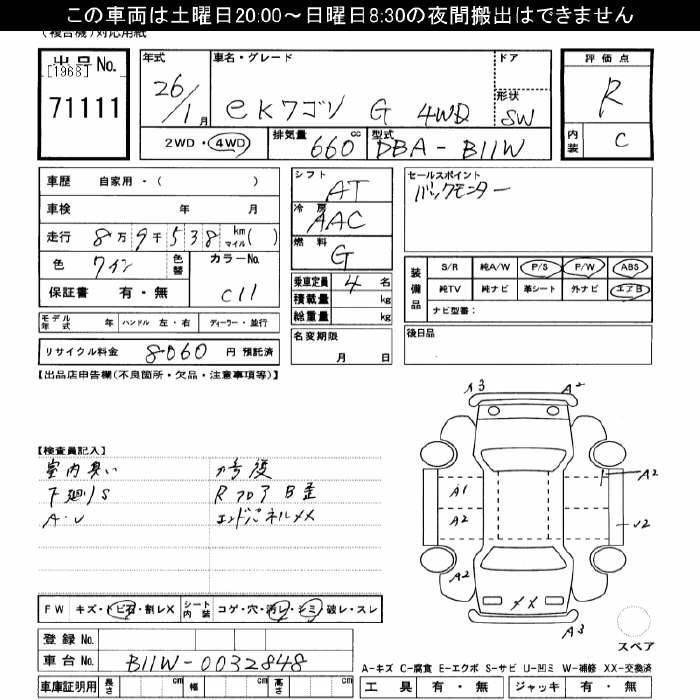 この車両は土曜日20:00～日曜日8:30の夜間搬出はできません
(複合機)対応用紙
出品No.
[1968]
71111
年式
26/1月
車名・グレード
eKワゴン G 4WD
ドア
形状
SW
評価点
R
内装
C
2WD・4WD
排気量
660cc
型式
DBA-B11W
車歴 自家用・( )
車検 年 月
走行 8万9千538km マイル( )
色 ワイン
色替
カラーNo.
C11
保証書 有・無
シフト
AT
冷房
AAC
燃料
G
乗車定員 4名
積載量 kg
総重量 kg
セールスポイント
バックモニター
装備品
S/R 純A/W P/S P/W ABS
純TV 純ナビ 革シート 外ナビ エアB
ナビ型番：
モデル年式 年 ハンドル 左・右 ディーラー・並行
リサイクル料金 8060 円 預託済
名変期限
月 日
後日品
【出品店申告欄(不良箇所・欠品・注意事項等)】
【検査員記入】
室内臭い
下廻りS
A・U
R フロア B歪
エンドパネルメメ
A3
A2
A1
A2
A2
A2
U2
XX
A3
スペア
FW キズ・トビ石・割レX
シート内装 コゲ・穴・汚レ・シミ・破レ・スレ
登録No.
車台No. B11W-0032848
車庫証明用 長さ cm 幅 cm 高さ cm
A-キズ C-腐食 E-エクボ S-サビ U-凹ミ W-補修 XX-交換済
工具 有・無 ジャッキ 有・無